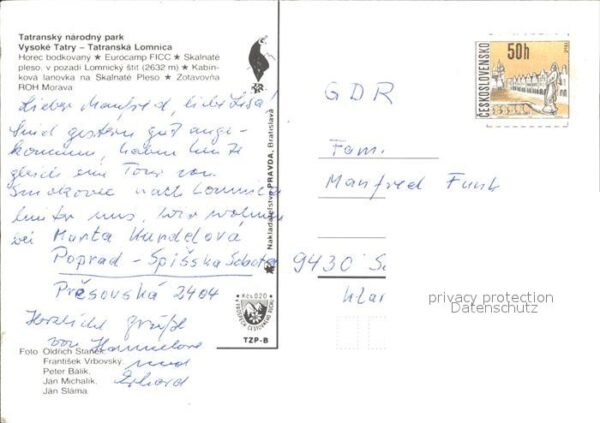 Tatranský národný park
Vysoké Tatry – Tatranská Lomnica
Horec bodkovaný ★ Eurocamp FICC ★ Skalnaté
pleso, v pozadí Lomnický štít (2632 m) ★ Kabín-
ková lanovka na Skalnaté Pleso ★ Zotavovňa
ROH Morava
Lieber Manfred, liebe Lisa!
Sind gestern gut ange-
kommen, haben heute
gleich eine Tour von
Smokovec nach Lomnica
hinter uns, wir wohnen
bei Marta Handelová
Poprad - Spišská Sobota
Prešovská 2404
Herzliche Grüße
von Hannelore
und
Erhard
Foto Oldřich Staněk,
František Vrbovský,
Peter Balik,
Jan Michalík,
Ján Sláma.
Nakladateľstvo PRAVDA, Bratislava
Kčs 0,20
TZP-B
ČESKOSLOVENSKO
50h
GDR
Fam.
Manfred Funk
9430 S
Klar
privacy protection
Datenschutz